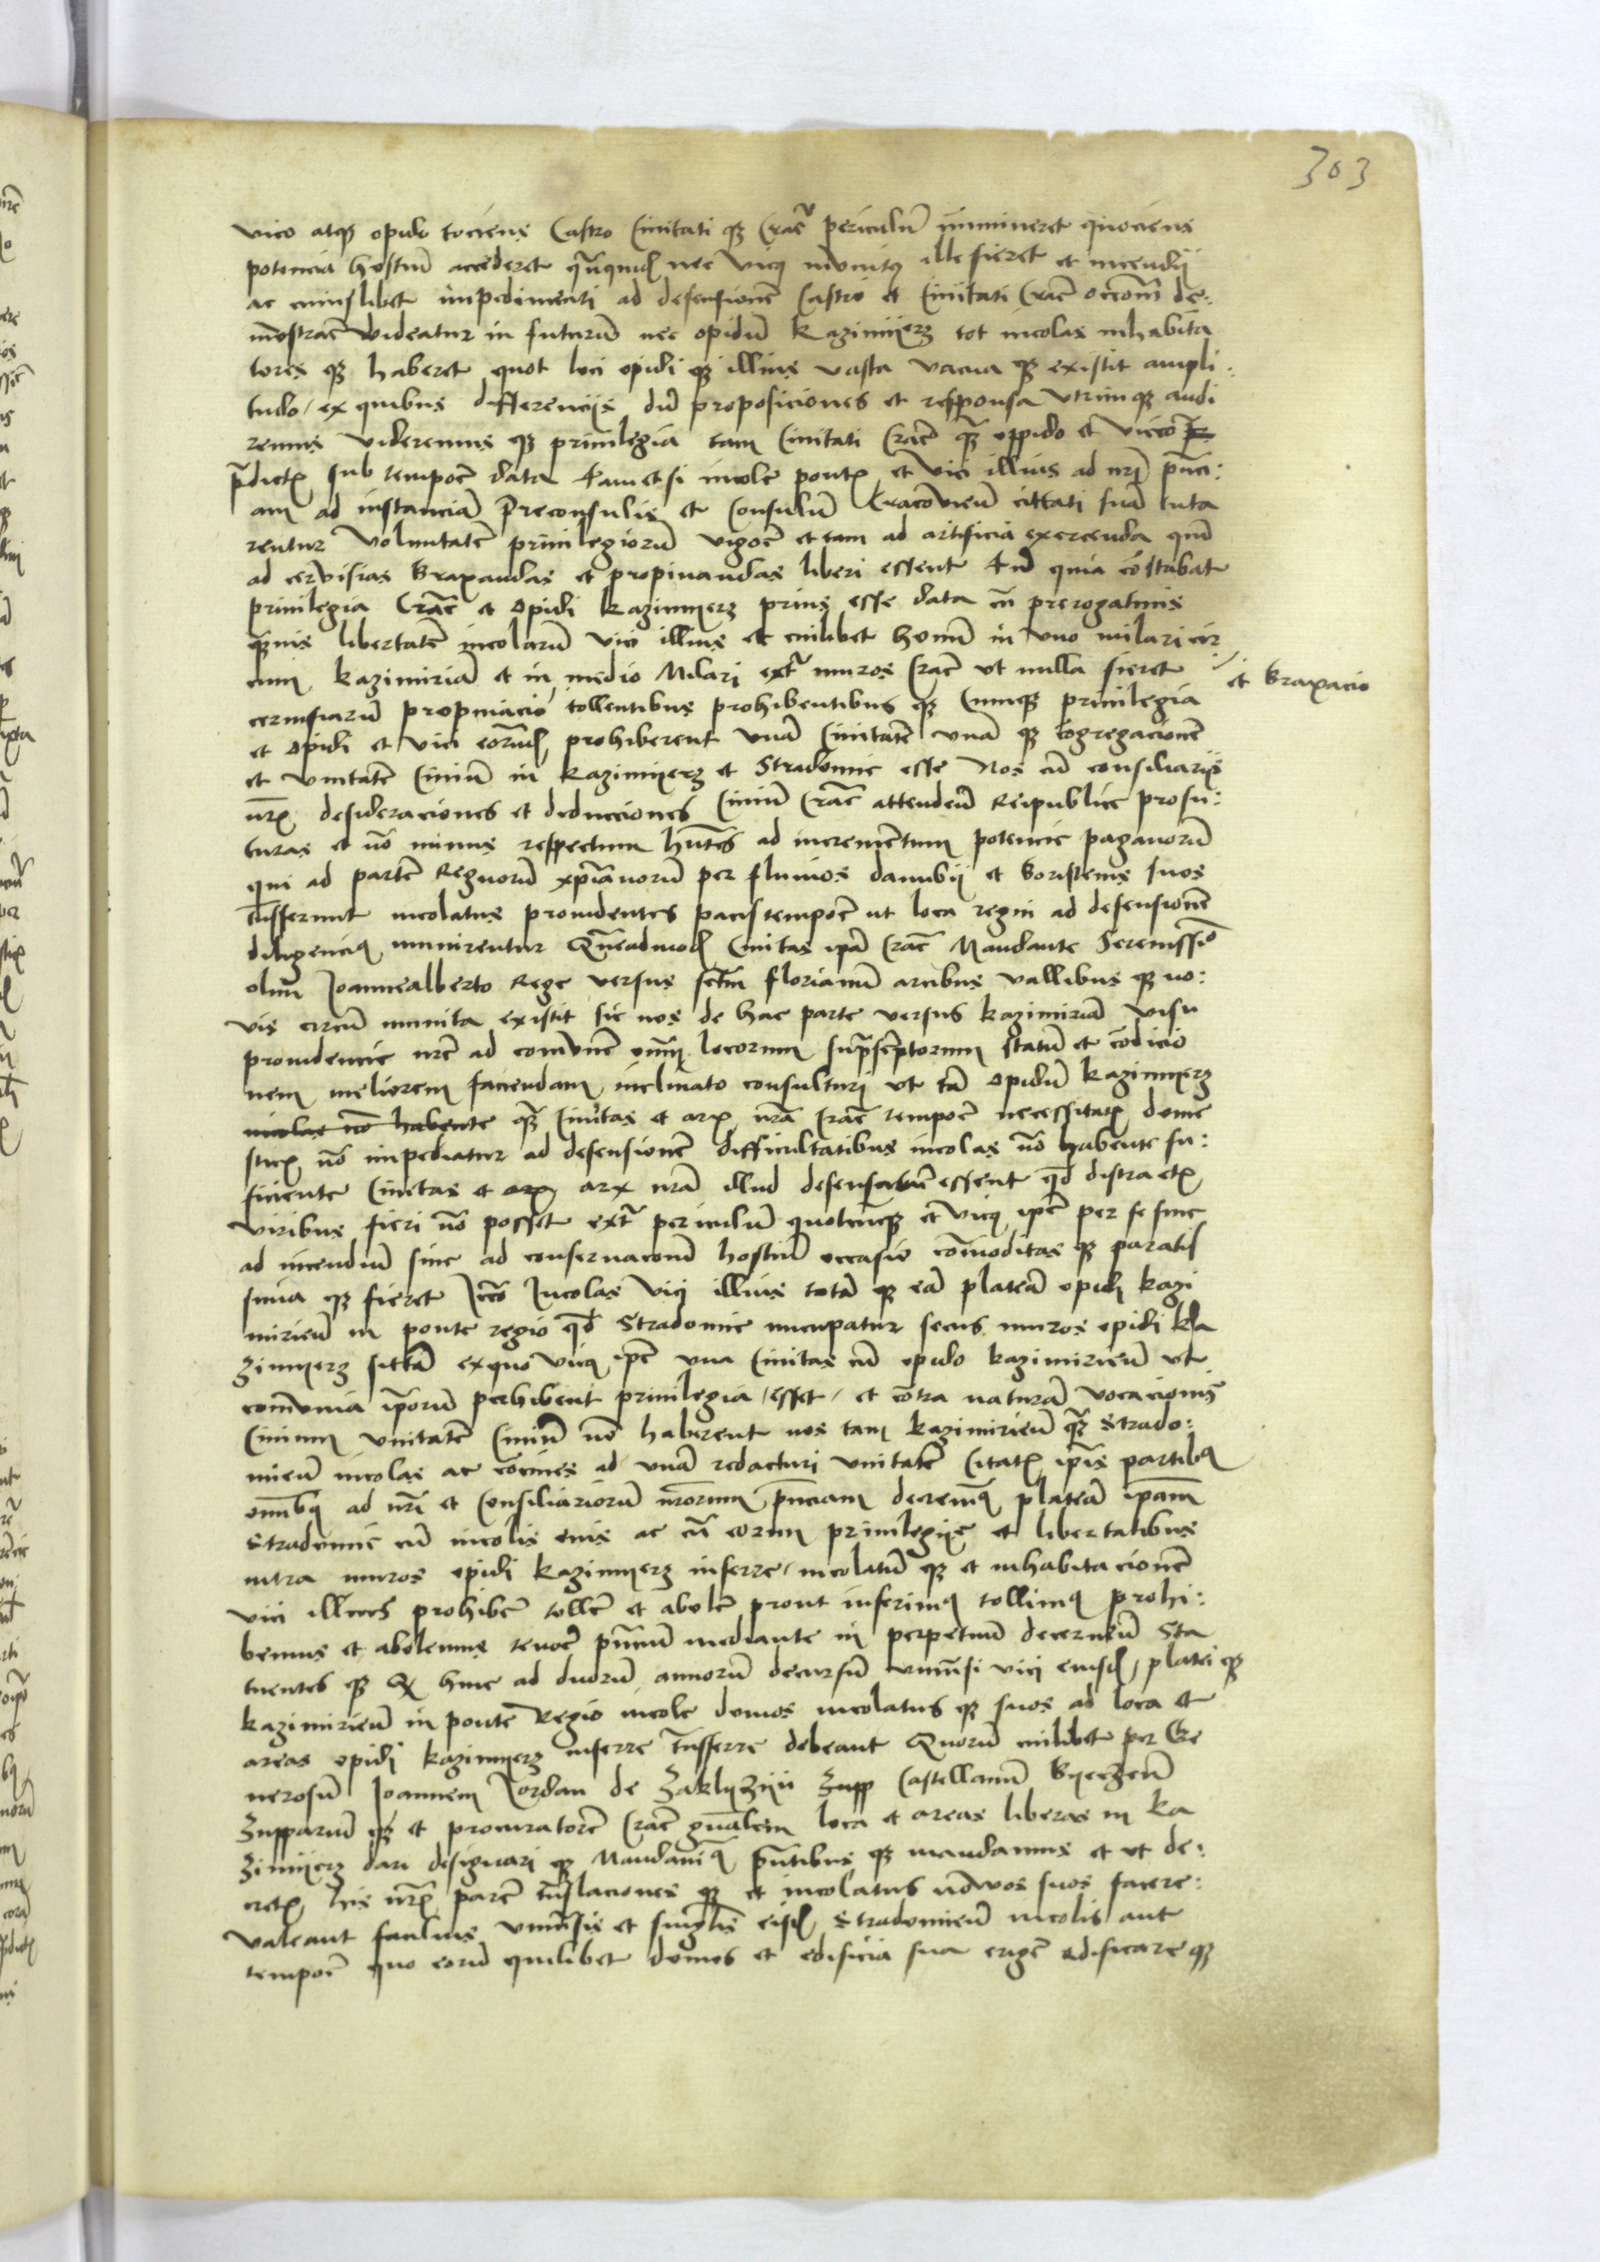 303
vico atq3 opido tociens Castro Civitati q3 Crac periculu immineret quociens
potencia hostiu accederet qu͠quid nec vicus munitus ille fieret et incendij
ac cuiuslibet impedimenti ad defensione Castri et Civitati Crac occaom̄ de:
mostrac videatur in futuru nec opidu Kazimijerz tot incolas inhabita
tores q3 haberet quot loci opidi q3 illius vasta vacua q3 existit ampli:
tudo / ex quibus differencijs du proposiciones et responsa utrimq3 audi
remus videremus q3 privilegia tam Civitati Crac qua oppido et vico
p̄dictis sub tempore data tametsi incole pontis et vici illius ad nr̄i pn̄ci:
am ad instancia Preconsulis et Consulu Cracovien̄ cittati sua tuta
rentur voluntate privilegioru vigore et tam ad artificia exercenda qm̄
ad cervisias braxandas et propinandas liberi essent tn̄ quia costabat
privilegia Crac et opidi Kazimijerz prius esse data cu prerogativis
quis libertate incolaru vici illius et cuilibet homi in uno milari cir
cum Kazimiria et in medio Milari ext muros Crac ut nulla fieret
et braxacio
cervisiaru propinacio tollentibus prohibentibus q3 Cumq3 privilegia
et opidi et vici eorund prohiberent una Civitate una q3 cogregacione
et unitate Civiu in Kazimijerz et Stradomie esse Nos cu consiliarijs
nr̄is desideraciones et deducciones Civiu Crac attenden̄ Reipublice profu:
turas et no minus respectum hn̄tes ad incrementum potencie paganoru
qui ad parte Regnoru xp̄ianoru per fluvios danubij et boristenis suos
tn̄sferunt incolatus providentes pacis tempore ut loca regni ad defensione
diligencius munirentur Queadmod Civitas ipa Crac Mandante Serenissio
olim Joannealberto Rege versus sctm̄ florianu arcibus vallibus q3 no:
vis circu munita existit sic nos de hac parte versus Kazimiria visu
providencie nr̄e ad comune omniu locorum supra scriptorum statu et codicio
nem meliorem faciendam inclinato consulturi ut ta opidu Kazimijerz
incolas no habente qua Civitas et arx nr̄a Crac tempore necessitatis dome
stice no impediatur ad defensione difficultatibus incolas no habente su:
ficiente Civitas et arx arx nr̄a illud defensatura essent qd distractis
viribus fieri no posset ext periculu quotcuq3 et vicus ipe per se sine
ad incendiu sive ad conservacom̄ hostiu occasio comoditas q3 paratis
sima q3 fieret Iccō Incolas vici illius tota q3 ea platea opidi Kazi
mirien̄ in ponte regio qd Stradomie nucupatur secus muros opidi Ka
zimijerz sitta exquo vicus ipe una Civitas cu opido Kazimirien̄ ut
comunia ipsoru perhibent privilegia / esset / et cotra natura vocacionis
Civium unitate Civiu no haberent nos tam Kazimirien̄ qua Strado:
mien̄ incolas ac coives ad una redacturi unitate Citatis ip̄is partibus
omibus ad nr̄i et Consiliarioru nr̄orum pn̄ciam decrevimus platea ipam
Stradomie cu incolis eius ac cu eorum privilegijs et libertatibus
intra muros opidi Kazimijerz inferre / incolatu q3 et inhabitacione
vici illius prohibere tollere et abolere prout inferimus tollimus prohi:
bemus et abolemus tenore pn̄tium mediante in perpetuu decernen̄ Sta
tuentes q3 Qx hinc ad duoru annoru decursu universi vici eiusd / platei q3
Kazimirien̄ in ponte Regio incole domos incolatus q3 suos ad loca et
areas opidi Kazimijerz inferre tn̄sferre debeant Quoru cuilibet per Ge
nerosu Joannem Jordan de Zaklijczijn Zupp Castellanu Bijeczen̄
Zuppariu q3 et procuratore Crac gn̄alem loca et areas liberas in Ka
zimijerz dari designari q3 Mandavimus pn̄tibus q3 mandamus et ut de:
cretis his nr̄is parere tn̄slaciones q3 et incolatus novos suos facere:
valeant facilius universis et singulis eisd Stradomien̄ incolis aut
tempore quo eoru quilibet domos et edificia sua erigere edificare q3